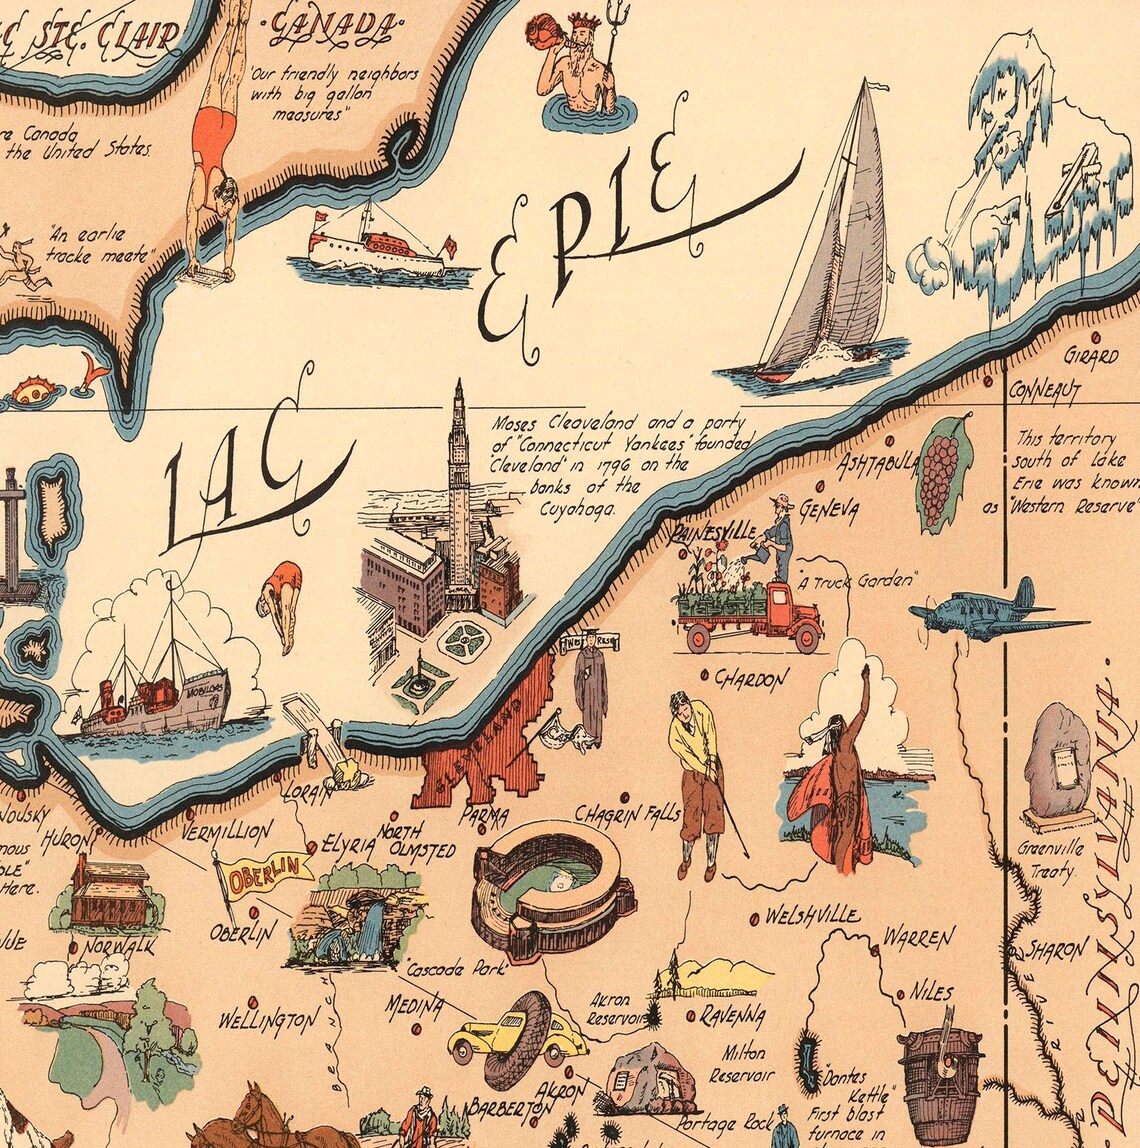 C STE. CLAIR
·CANADA·
"Our friendly neighbors
with big gallon
measures"
re Canada
the United States.
"An earlie
tracke meate"
ERIE
LAC
Moses Cleaveland and a party
of "Connecticut Yankees" founded
"Cleveland" in 1796 on the
banks of the
Cuyahoga.
GIRARD
CONNEAUT
This territory
south of Lake
Erie was known
as "Western Reserve"
ASHTABULA
GENEVA
PAINESVILLE
"A Truck Garden"
WEST RESE
CHARDON
MOBILGAS
CLEVELAND
LORAIN
PARMA
CHAGRIN FALLS
NDUSKY
HURON
VERMILLION
ELYRIA
NORTH
OLMSTED
Greenville
Treaty.
PENNSYLVANIA
mous
OLE"
Here.
OBERLIN
OBERLIN
WELSHVILLE
WARREN
SHARON
VUE
NORWALK
"Cascade Park"
NILES
RIVER
WELLINGTON
MEDINA
Akron
Reservoir
RAVENNA
BRANCH
Milton
Reservoir
AKRON
BARBERTON
Portage Rock
"Dantes
Kettle"
First blast
furnace in